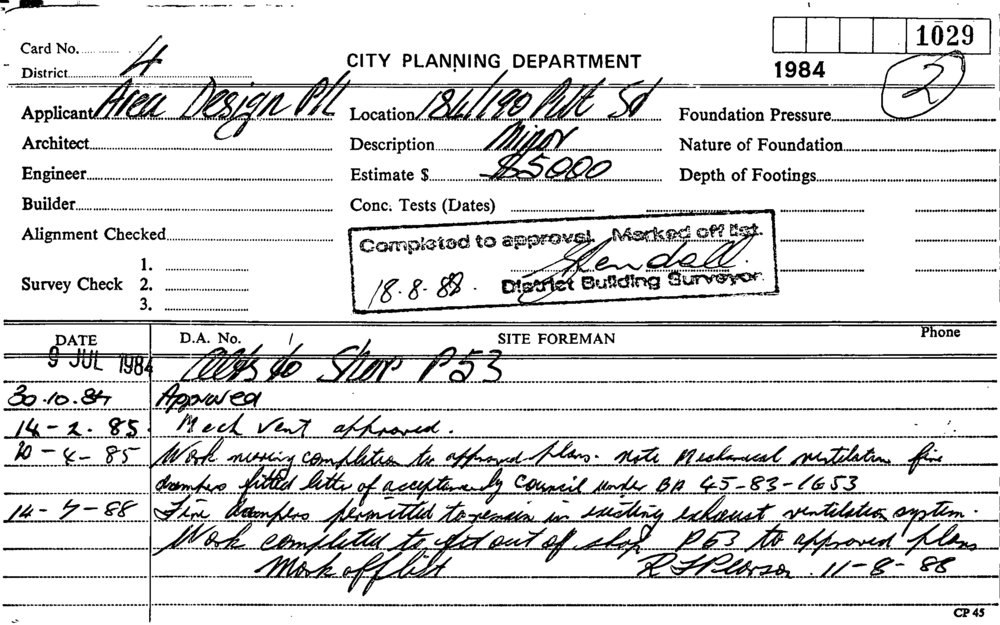 1029
Card No.
4
CITY PLANNING DEPARTMENT
1984
2
District
Applicant Area Design P/L
Location 184/190 Pitt St
Foundation Pressure
Architect
Description Minor
Nature of Foundation
Engineer
Estimate $ $5000
Depth of Footings
Builder
Conc. Tests (Dates)
Alignment Checked
Completed to approval. Marked off list.
Survey Check 1.
2.
3.
18.8.88. District Building Surveyor.
DATE D.A. No. SITE FOREMAN Phone
9 JUL 1984 Alts to Shop P53
30.10.84 Approved
14-2.85. Mech Vent approved.
20-4-85 Work nearing completion to approved plans. note Mechanical ventilation fire
dampers fitted letter of acceptance by Council under BA 45-83-1653
14-7-88 Fire dampers permitted to remain in existing exhaust ventilation system.
Work completed to fit out of shop P53 to approved plans
Mark off list R Pearson. 11-8-88
CP 45